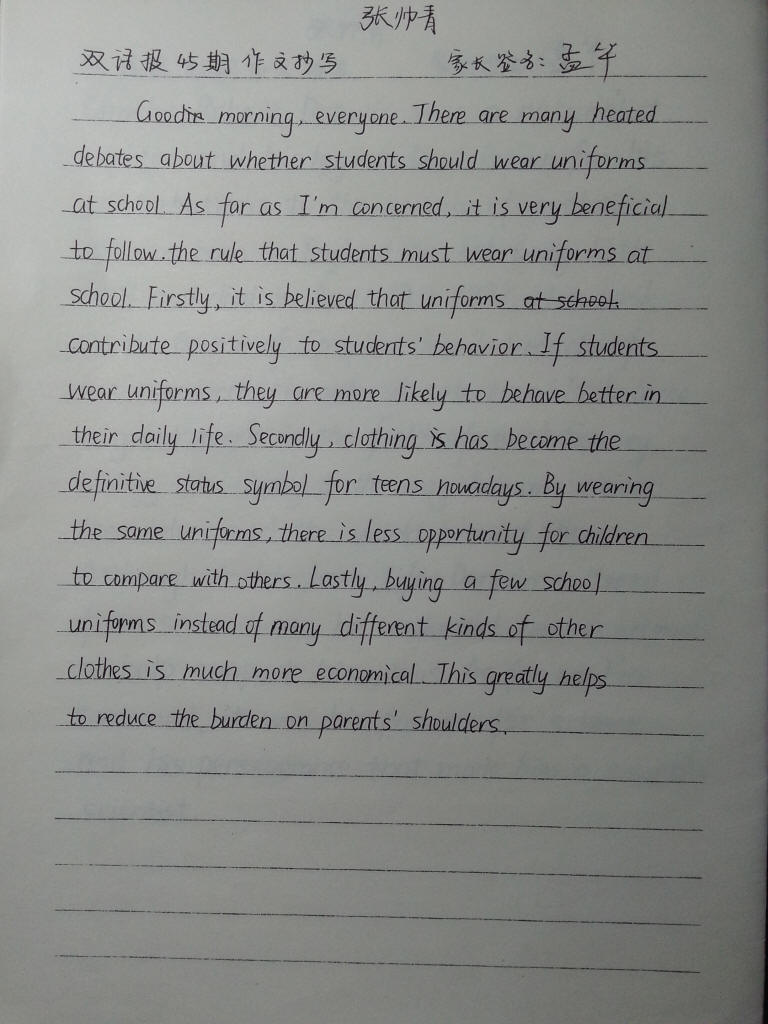 张帅青
双语报45期作文抄写 家长签名:孟华
Good morning, everyone. There are many heated
debates about whether students should wear uniforms
at school. As far as I'm concerned, it is very beneficial
to follow.the rule that students must wear uniforms at
school. Firstly, it is believed that uniforms at school.
contribute positively to students' behavior. If students
wear uniforms, they are more likely to behave better in
their daily life. Secondly, clothing is has become the
definitive status symbol for teens nowadays. By wearing
the same uniforms, there is less opportunity for children
to compare with others. Lastly, buying a few school
uniforms instead of many different kinds of other
clothes is much more economical. This greatly helps
to reduce the burden on parents' shoulders.